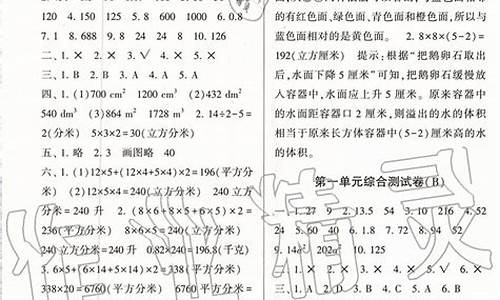 120 4. 150 125 5. 8 600 1000 6. 0.8
7. 1 8. 688 9. 8 24 24 8 10. 125
二、1. × 2. × 3. ✓ 4. × 5. ×
三、1. B 2. B 3. A 4. A 5. B
四、1. (1)700 cm² 1200 cm³ (2)432 dm²
540 dm³ (3)864 m² 1728 m³ 2. 14÷2-5=
2(分米) 5×3×2=30(立方分米)
五、1. 略 2. 3 画图略 40
六、1. (1)12×5+(12×4+5×4)×2=196(平方分
米) (2)12×5×4=240(立方分米) 240 立方
分米=240 升 2. (8×6+8×5+6×5)×2=
236(平方分米) 8×6×5=240(立方分米)
240 立方分米=240 升 0.82×240=196.8(千克)
3. 6×5+(6×14+5×14)×2=338(平方分米)
338×20=6760(平方分米) 6760 平方分米=
的有红色面、绿色面、青色面和橙色面,所以与
蓝色面相对的是黄色面。 2. 8×8×(5-2)=
192(立方厘米) 提示:根据“把鹅卵石取出
后,水面下降 5 厘米”可知,把鹅卵石缓慢放
入容器中,水面应上升 5 厘米。原来容器中
的水面距容器口 2 厘米,则溢出的水的体积
相当于原来长方体容器中(5-2)厘米高的水
的体积。
第一单元综合测试卷(B)
一、1. 27 9 2. 13.5 54 3. 10 216 4. 52
24 5. 60 6. 1.8 7. 72 8. 94 52
9. 14a² 202a² 10. 125
二、1. × 2. × 3. × 4. × 5. ✓ 6. ×
三、1. D 2. A 3. C 4. C 5. A 6. B